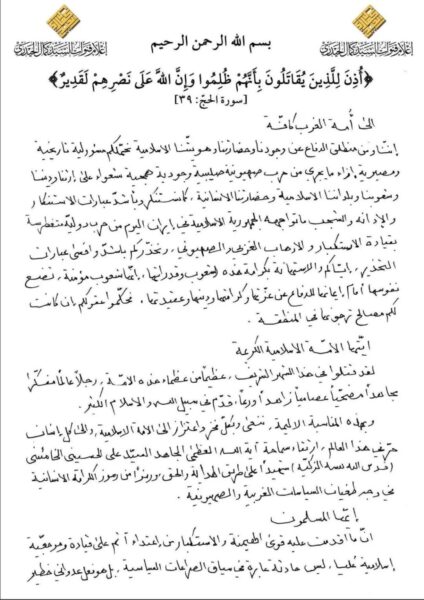 إعلام قنوات السيد كمال الحيدري
إعلام قنوات السيد كمال الحيدري
بسم الله الرحمن الرحيم
﴿أُذِنَ لِلَّذِينَ يُقَاتَلُونَ بِأَنَّهُمْ ظُلِمُوا وَإِنَّ اللَّهَ عَلَى نَصْرِهِمْ لَقَدِيرٌ﴾
[سورة الحجّ: ٣٩]
الى أُمة الغرب كافة
إننا ومن منطلق الدفاع عن وجودنا وحضارتنا وهويتنا الاسلامية نحملكم مسؤولية تاريخية
ومصيرية إزاء ما يجري من حرب صهيونية صليبية وجودية همجية شعواء على إرثنا وديننا
وشعوبنا وبلداننا الاسلامية وحضارتنا الانسانية، كما نستنكر وبأشد عبارات الاستنكار
والإدانة والشجب ما تواجهه الجمهورية الاسلامية في ايران اليوم من حرب دولية متغطرسة
بقيادة الاستكبار والارهاب الغربي والصهيوني، ونحذركم بأشد وأقسى عبارات
التحذير، إياكم والاستهانة بكرامة هذه الشعوب وقدراتها، إنها شعوب مؤمنة، تضع
نفوسها أمام إيمانها للدفاع عن عزتها وكرامتها ودينها وعقيدتها. فحكّموا عقولكم إن كانت
لكم مصالح ترجونها في المنطقة.
ايتها الامة الاسلامية الكريمة
لقد قتلوا في هذا الشهر الشريف، عظيماً من عظماء هذه الامة، رجلاً عالماً مفكراً
مجاهداً مضحياً عصامياً زاهداً ورعاً، قدّم في سبيل الله والاسلام الكثير.
وبهذه المناسبة الاليمة، ننعى وبكل فخر واعتزاز الى الامة الإسلامية، والى كل إنسان
حرّ في هذا العالم، ارتقاء سماحة آية الله العظمى المجاهد السيد علي الحسيني الخامنئي
(قدس الله نفسه الزكية) شهيداً على طريق الهداية والحق ورمزاً من رموز الكرامة الانسانية
في وجه طغيان السياسات الغربية والصهيونية.
إيها المسلمون
انّ ما اقدمت عليه قوى الهيمنة والاستكبار من إعتداء آثم على قيادة ومرجعية
إسلامية عليا، ليس حادثة عابرة في سياق الصراعات السياسية، بل هو فعل عدواني خطير